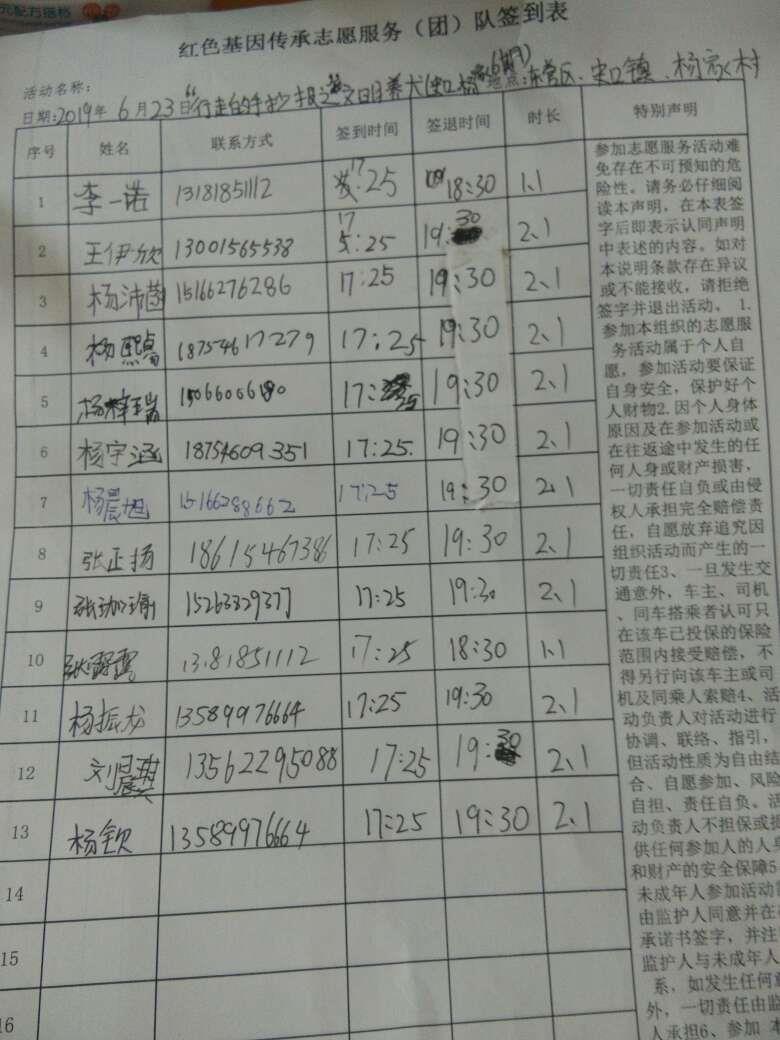 元配方搭档
红色基因传承志愿服务（团）队签到表
活动名称：
日期：2019年6月23日 "行走的手抄报之 地点：东营区、史口镇、杨家村
序号 姓名 联系方式 签到时间 签退时间 时长 特别声明
1 李一诺 13181851112 17:25 18:30 1.1
2 王伊欣 13001565538 17 5:25 19:30 2.1
3 杨沛菡 15166276286 17:25 19:30 2.1
4 杨熙 18754617279 17:25 19:30 2.1
5 杨梓瑞 17: 19:30 2.1
6 杨宇涵 18754609351 17:25. 19:30 2.1
7 杨晨旭 15166288662 17:25 19:30 2.1
8 张正扬 18615467386 17:25 19:30 2.1
9 张 15263829377 17:25 19:30 2.1
10 张 13181851112 17:25 18:30 1.1
11 杨振龙 13589976664 17:25 19:30 2.1
12 刘 13562295088 17:25 19:30 2.1
13 杨钦 13589976664 17:25 19:30 2.1
14
15
16
参加志愿服务活动难
免存在不可预知的危
险性。请务必仔细阅
读本声明，在本表签
字后即表示认同声明
中表述的内容。如对
本说明条款存在异议
或不能接收，请拒绝
签字并退出活动。 1.
参加本组织的志愿服
务活动属于个人自
愿，参加活动要保证
自身安全，保护好个
人财物2.因个人身体
原因及在参加活动或
在往返途中发生的任
何人身或财产损害，
一切责任自负或由侵
权人承担完全赔偿责
任，自愿放弃追究因
组织活动而产生的一
切责任3、一旦发生交
通意外，车主、司机
、同车搭乘者认可只
在该车已投保的保险
范围内接受赔偿，不
得另行向该车主或司
机及同乘人索赔4、活
动负责人对活动进行
协调、联络、指引，
但活动性质为自由结
合、自愿参加、风险
自担、责任自负。活
动负责人不担保或提
供任何参加人的人身
和财产的安全保障5
未成年人参加活动
由监护人同意并在
承诺书签字，并注
监护人与未成年人
系，如发生任何意
外，一切责任由监
人承担6、参加 本